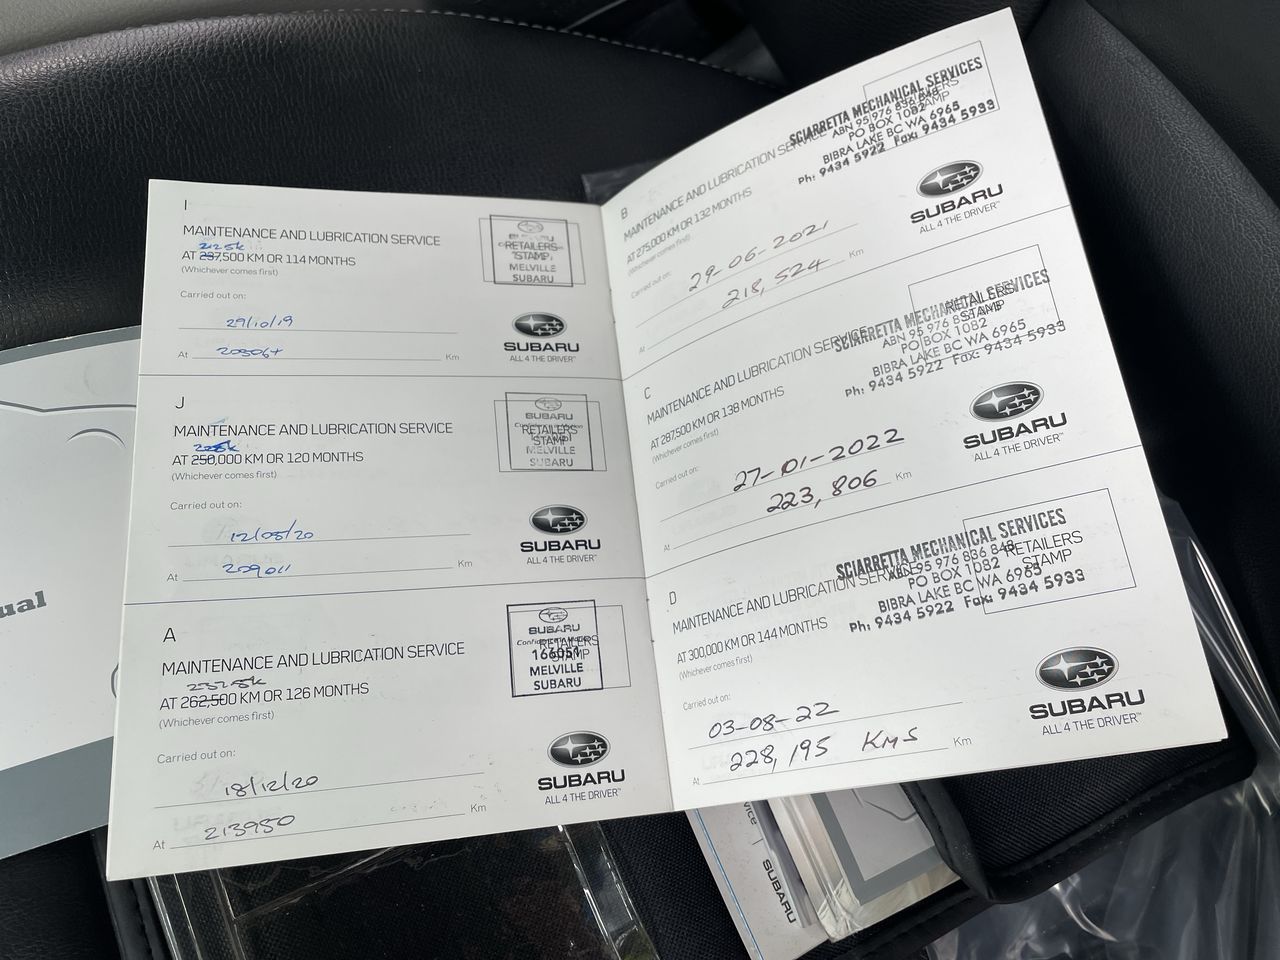 I
MAINTENANCE AND LUBRICATION SERVICE
AT 287,500 KM OR 114 MONTHS
(Whichever comes first)
Carried out on:
29/10/19
At Km
RETAILERS
STAMP
MELVILLE
SUBARU
SUBARU
ALL 4 THE DRIVER™
J
MAINTENANCE AND LUBRICATION SERVICE
AT 250,000 KM OR 120 MONTHS
(Whichever comes first)
Carried out on:
12/05/20
At 209011 Km
SUBARU
RETAILERS
STAMP
MELVILLE
SUBARU
SUBARU
ALL 4 THE DRIVER™
A
MAINTENANCE AND LUBRICATION SERVICE
237.5k
AT 262,500 KM OR 126 MONTHS
(Whichever comes first)
Carried out on:
18/12/20
At 213950 Km
SUBARU
RETAILERS
STAMP
166051
MELVILLE
SUBARU
SUBARU
ALL 4 THE DRIVER™
B
MAINTENANCE AND LUBRICATION SERVICE
AT 275,000 KM OR 132 MONTHS
(Whichever comes first)
Carried out on:
29-06-2021
218,524 Km
At
SCIARRETTA MECHANICAL SERVICES
ABN 95 976 836 848
PO BOX 1082
BIBRA LAKE BC WA 6965
Ph: 9434 5922 Fax: 9434 5933
SUBARU
ALL 4 THE DRIVER™
C
MAINTENANCE AND LUBRICATION SERVICE
AT 287,500 KM OR 138 MONTHS
(Whichever comes first)
Carried out on:
27-01-2022
223,806 Km
At
SCIARRETTA MECHANICAL SERVICES
RETAILERS
STAMP
PO BOX 1082
BIBRA LAKE BC WA 6965
Ph: 9434 5922 Fax: 9434 5933
SUBARU
ALL 4 THE DRIVER™
D
MAINTENANCE AND LUBRICATION SERVICE
AT 300,000 KM OR 144 MONTHS
(Whichever comes first)
Carried out on:
03-08-22
At 228,195 KMS Km
SCIARRETTA MECHANICAL SERVICES
ABN 95 976 836 848
RETAILERS
STAMP
PO BOX 1082
BIBRA LAKE BC WA 6965
Ph: 9434 5922 Fax: 9434 5933
SUBARU
ALL 4 THE DRIVER™
SUBARU